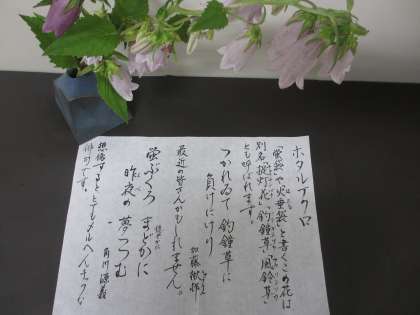 ホタルブクロ
「蛍袋」や「火垂袋」と書くこの花は
別名、提灯花、釣鐘草、風鈴草
とも呼ばれます。
つかれゐて釣鐘草に
負けにけり
加藤
最近の皆さんかもしれません。
蛍ぶくろ まどかに
昨夜の夢つつむ
角川源義
想像するととてもメルヘンチックな
俳句です。